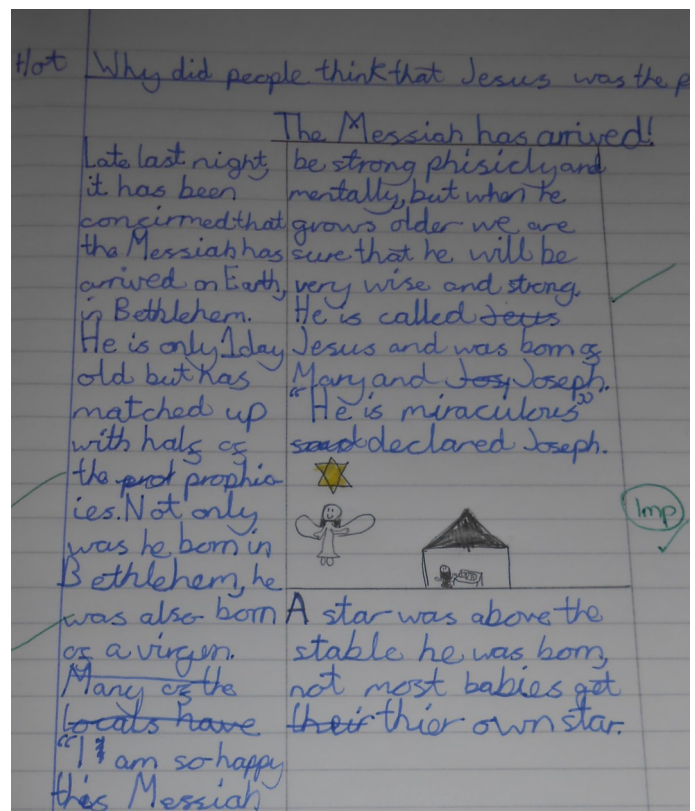 Hot Why did people think that Jesus was the
The Messiah has arrived!
Late last night,
it has been
confirmed that
the Messiah has
arrived on Earth,
in Bethlehem.
He is only 1 day
old but has
matched up
with half of
the prophic-
ies. Not only
was he born in
Bethlehem, he
was also born
of a virgen.
Many of the
locals have
"I am so happy
this Messiah
be strong phisicly and
mentally, but when he
grows older we are
sure that he will be
very wise and strong.
He is called Jeus
Jesus and was born of
Mary and Josy Joseph.
"He is miraculous"
said declared Joseph.
Imp
A star was above the
stable he was born,
not most babies get
their thier own star.